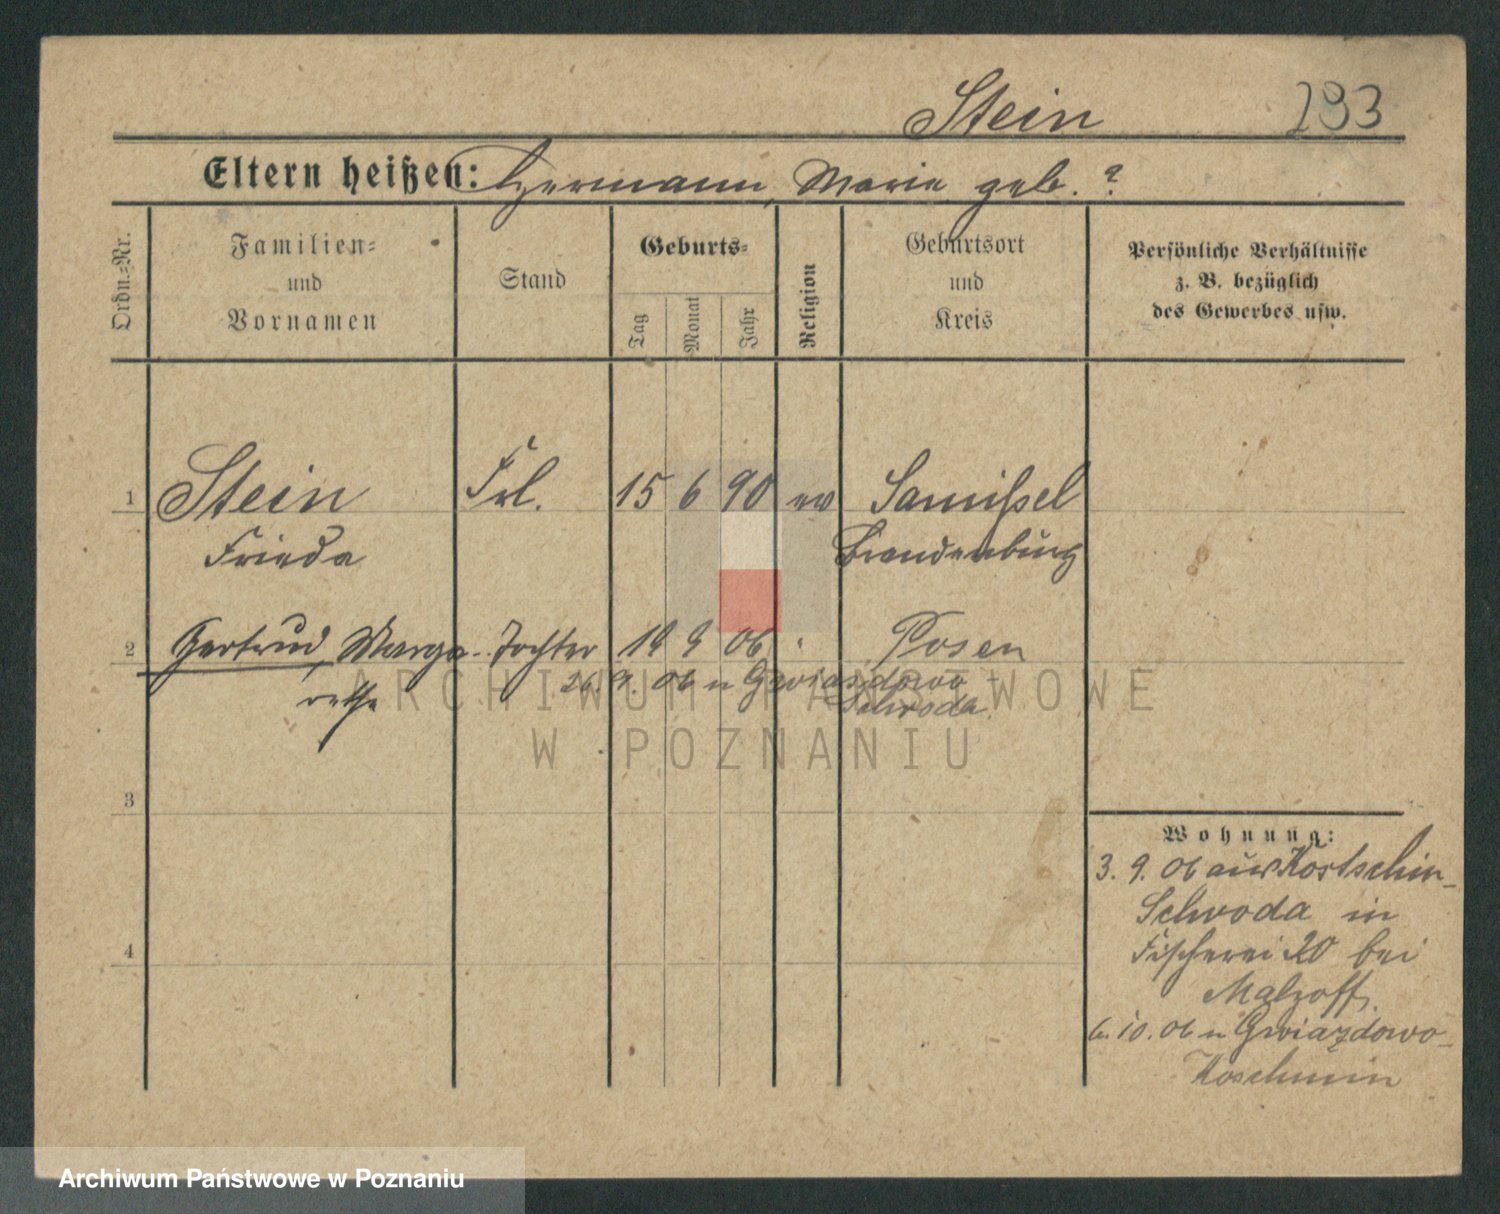 Stein 293
Eltern heißen: Hermann, Marie geb. ?
Ordn.-Nr.
Familien-
und
Vornamen
Stand
Geburts-
Tag
Monat
Jahr
Religion
Geburtsort
und
Kreis
Persönliche Verhältnisse
z. B. bezüglich
des Gewerbes usw.
1 Stein Frl. 15 6 90 ev
Frieda Brandenburg
2 Gertrud, Marga- Tochter 9 06 " Posen
rethe
26. 9. 06 n Gwiazdowo
Schroda
3
4
Wohnung:
3. 9. 06 aus Kostschin-
Schroda in
Fischerei 20 bei
6. 10. 06 n Gwiazdowo-
Koschmin
ARCHIWUM PAŃSTWOWE
W POZNANIU
Archiwum Państwowe w Poznaniu